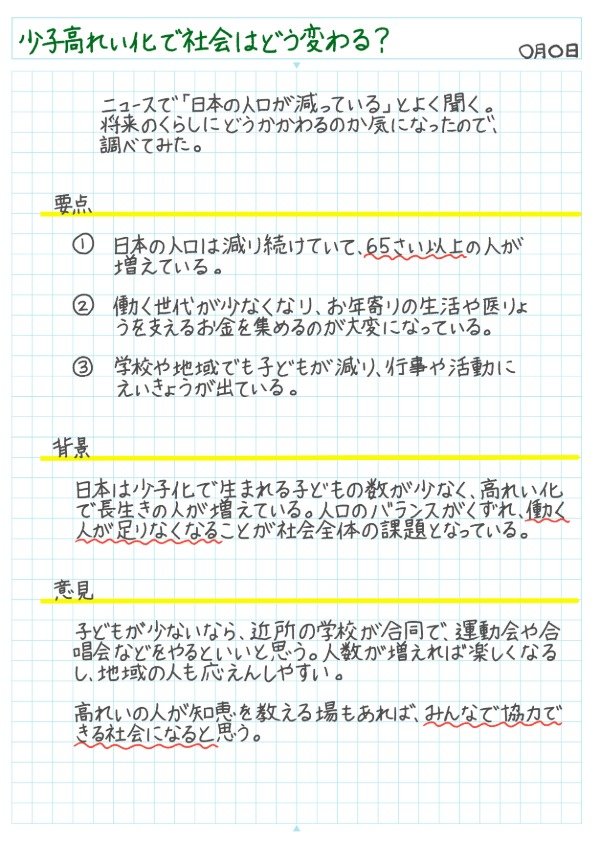 少子高れい化で社会はどう変わる？
〇月〇日
ニュースで「日本の人口が減っている」とよく聞く。
将来のくらしにどうかかわるのか気になったので、
調べてみた。
要点
① 日本の人口は減り続けていて、65さい以上の人が
増えている。
② 働く世代が少なくなり、お年寄りの生活や医りょ
うを支えるお金を集めるのが大変になっている。
③ 学校や地域でも子どもが減り、行事や活動に
えいきょうが出ている。
背景
日本は少子化で生まれる子どもの数が少なく、高れい化
で長生きの人が増えている。人口のバランスがくずれ、働く
人が足りなくなることが社会全体の課題となっている。
意見
子どもが少ないなら、近所の学校が合同で、運動会や合
唱会などをやるといいと思う。人数が増えれば楽しくなる
し、地域の人も応えんしやすい。
高れいの人が知恵を教える場もあれば、みんなで協力で
きる社会になると思う。